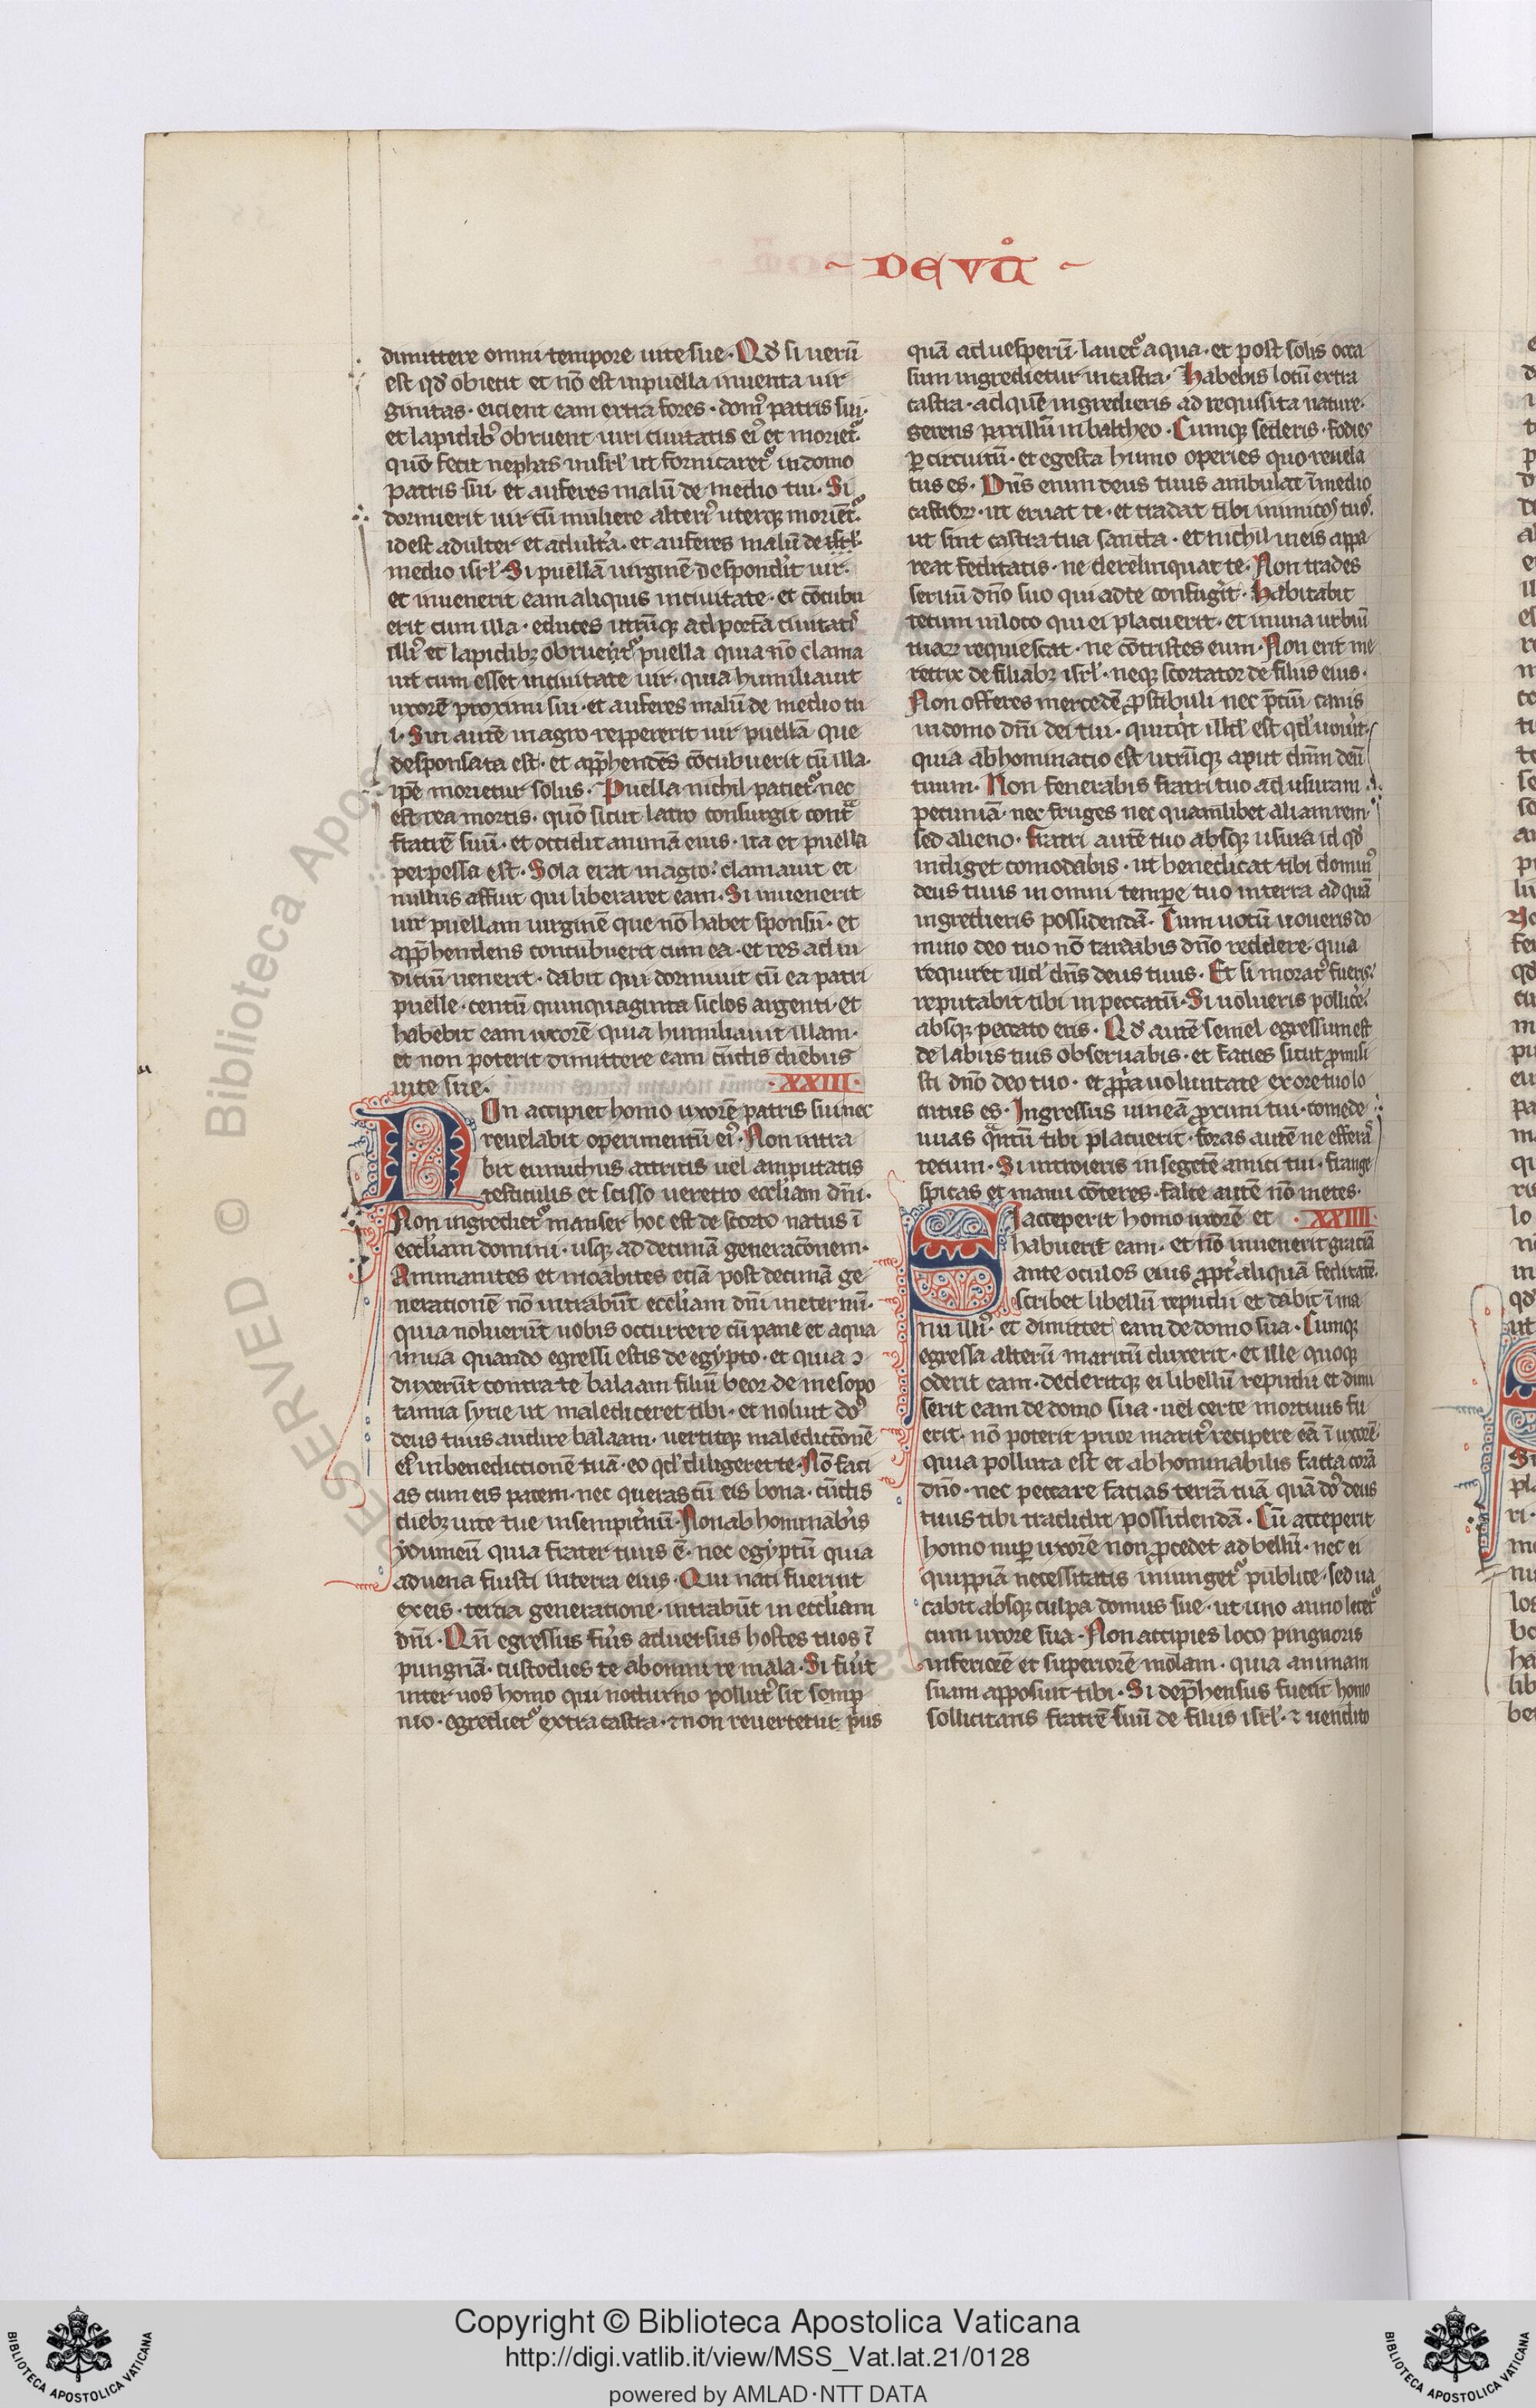 ~ DEVT̄ ~
dimittere omni tempore uite sue · Qđ si uerū
est qđ obicit et nō est in puella inuenta uir
ginitas · eicient eam extra fores · dom᷒ patris sui ·
et lapidib᷒ obruent uiri ciuitatis ei᷒ et moriet᷑ ·
quō fecit nephas in isrł ut fornicaret᷑ in domo
patris sui · et auferes malū de medio tui · Si
dormierit uir cū muliere alteri᷒ uterq; moriēt᷑ ·
id est adulter et adulťa · et auferes malū de isrł ·
medio isrł · Si puellā uirginē desponđit uir ·
et inuenerit eam aliquis in ciuitate · et cōcubu
erit cum illa · educes utrūq; ad portā ciuitatꝭ
illi᷒ et lapidib; obruent᷑ puella quia nō clama
uit cum esset in ciuitate uir · quia humiliauit
uxorē proximi sui · et auferes malū de medio tu
i · Sin autē in agro reppererit uir puellā que
desponsata est · et app̄hendēs cōcubuerit cū illa ·
ip̄e morietur solus · Puella nichil patiet᷑ · nec
est rea mortis · quō sicut latro consurgit contᷓ
fratrē suū · et occidit animā eius · ita et puella
perpessa est · Sola erat in agro · clamauit et
nullus affuit qui liberaret eam · Si inuenerit
uir puellam uirginē que nō habet sponsū · et
app̄hendens concubuerit cum ea · et res ad iu
diciū uenerit · dabit qui dormiuit cū ea patri
puelle · centū quinquaginta siclos argenti · et
habebit eam uxorē quia humiliauit illam ·
et non poterit dimittere eam cūctis diebus
uite sue · · XXIII ·
Non accipiet homo uxorē patris sui nec
reuelabit operimentū ei᷒ · Non intra
bit eunuchus attritis uel amputatis
testiculis et scisso ueretro eccłiam dn̄i ·
Non ingrediet᷑ manser hoc est de scorto natus ī
eccłiam domini · usq; ad decimā generac̄onem ·
Ammanites et moabites etiā post decimā ge
nerationē nō intrabūt eccłiam dn̄i in eternū ·
quia noluerūt uobis occurrere cū pane et aqua
in uia quando egressi estis de egypto · et quia ɔ
duxerūt contra te balaam filiū beor de mesopo
tamia syrie ut malediceret tibi · et noluit do᷒
deus tuus audire balaam · uertitq; maledictōnē
ei᷒ in benedictionē tuā · eo qđ diligeret te · Nō faci
as cum eis pacem · nec queras cū eis bona · cūctis
dieb; uite tue in sempit̓nū · Non abhominab̓is
ydumeū quia frater tuus ē · nec egyptiū quia
aduena fuisti in terra eius · Qui nati fuerint
ex eis · tercia generatione · intrabūt in eccłiam
dn̄i · Qn̄ egressus fu̓is aduersus hostes tuos ī
pungnā · custodies te ab omni re mala · Si fu̓it
inter uos homo qui nocturno pollut᷒ sit somp
nio · egrediet᷑ extra castra · ⁊ non reuertetur p̓us
quā ad uesperū · lauet᷑ aqua · et post solis occa
sum ingredietur in castra · Habebis locū extra
castra · ad quē ingredieris ad requisita nature ·
gerens paxillū in baltheo · Cumq; sederis · fodies
ꝑ circuitū · et egesta humo operies quo reuela
tus es · Dn̄s enim deus tuus ambulat ī medio
castroꝝ · ut eruat te · et tradat tibi inimicos tuos ·
ut sint castra tua sancta · et nichil in eis appa
reat feditatis · ne derelinquat te · Non trades
seruū dn̄o suo qui ad te confug̓it · Habitabit
tecum in loco qui ei placuerit · et in una urbiū
tuaꝝ requiescat · ne cōtristes eum · Non erit me
retrix de filiab; isrł · neq; scortator de filiis eius ·
Non offeres mercedē ꝓstibuli nec p̄ciū canis
in domo dn̄i dei tui · quicq̓d illđ est qđ uou̓it ·
quia abhominatio est utrūq; aput dn̄m deū
tuum · Non fenerabis fratri tuo ad usuram
pecuniā · nec fruges nec quamlibet aliam rem ·
sed alieno · Fratri autē tuo absq; usura id qđ
indiget comodabis · ut benedicat tibi domin᷒
deus tuus in omni tempe tuo in terra ad quā
ingredieris possidendā · Cum uotū uoueris do
mino deo tuo nō tardabis dn̄o reddere · quia
requiret illđ dn̄s deus tuus · Et si morat᷒ fueris ·
reputabit tibi in peccatū · Si uolueris pollic̓e ·
absq; peccato eris · Qđ autē semel egressum est
de labiis tuis obseruabis · et facies sicut ꝓmisi
sti dn̄o deo tuo · et ꝓp̓a uoluntate ex ore tuo lo
cutus es · Ingressus uineā ꝓximi tui · comede
uuas qᷓntū tibi placuerit · foras autē ne efferas
tecum · Si introieris in segetē amici tui · frange
spicas et manu cōteres · falce autē nō metes ·
Si acceperit homo uxorē et · XXIIII ·
habuerit eam · et nō inuenerit graciā
ante oculos eius ꝓpt̓ aliquā feditatē ·
scribet libellū repudii et dabit ī ma
nu illi᷒ · et dimittet eam de domo sua · Cumq;
egressa alterū maritū duxerit · et ille quoq;
oderit eam · dederitq; ei libellū repudii et dimi
serit eam de domo sua · uel certe mortuus fu
erit · nō poterit prior marit᷒ recipere eā ī uxorē
quia polluta est et abhominabilis facta corā
dn̄o · nec peccare facias terrā tuā quā do᷒ deus
tuus tibi tradidit possidendā · Cū acceperit
homo nuꝑ uxorē non ꝓcedet ad bellū · nec ei
quippiā necessitatis iniunget᷑ publice · sed ua
cabit absq; culpa domus sue · ut uno anno letet᷑
cum uxore sua · Non accipies loco pingnoris
inferiorē et superiorē molam · quia animam
suam apposuit tibi · Si dep̄hensus fuerit homo
sollicitans fratrē suū de filiis isrł · ⁊ uendito
RESERVED © Biblioteca Apos
Copyright © Biblioteca Apostolica Vaticana
http://digi.vatlib.it/view/MSS_Vat.lat.21/0128
powered by AMLAD·NTT DATA
BIBLIOTECA APOSTOLICA VATICANA
BIBLIOTECA APOSTOLICA VATICANA